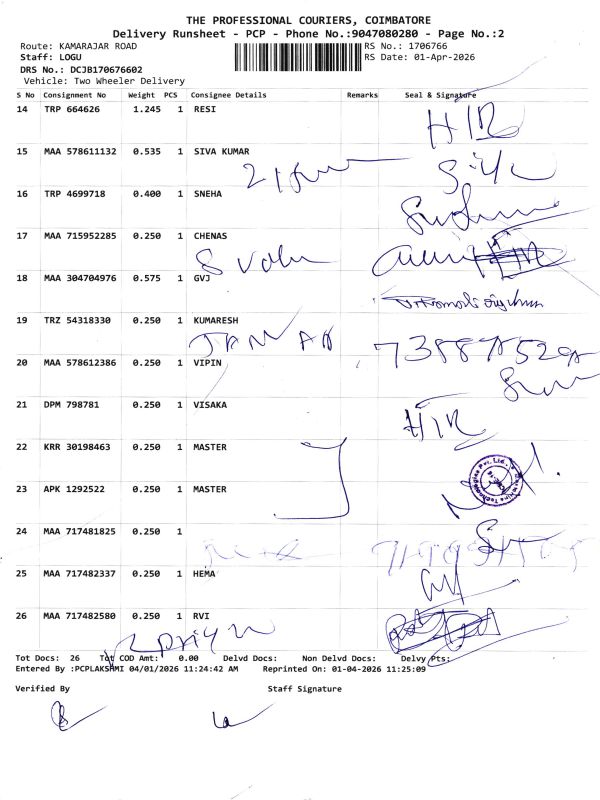 THE PROFESSIONAL COURIERS, COIMBATORE
Delivery Runsheet - PCP - Phone No.:9047080280 - Page No.:2
Route: KAMARAJAR ROAD RS No.: 1706766
Staff: LOGU RS Date: 01-Apr-2026
DRS No.: DCJB170676602
Vehicle: Two Wheeler Delivery
S No Consignment No Weight PCS Consignee Details Remarks Seal & Signature
14 TRP 664626 1.245 1 RESI
15 MAA 578611132 0.535 1 SIVA KUMAR
16 TRP 4699718 0.400 1 SNEHA
17 MAA 715952285 0.250 1 CHENAS
18 MAA 304704976 0.575 1 GVJ
19 TRZ 54318330 0.250 1 KUMARESH
20 MAA 578612386 0.250 1 VIPIN
21 DPM 798781 0.250 1 VISAKA
22 KRR 30198463 0.250 1 MASTER
23 APK 1292522 0.250 1 MASTER
24 MAA 717481825 0.250 1
25 MAA 717482337 0.250 1 HEMA
26 MAA 717482580 0.250 1 RVI
Priya
Tot Docs: 26 Tot COD Amt: 0.00 Delvd Docs: Non Delvd Docs: Delvy Pts:
Entered By :PCPLAKSHMI 04/01/2026 11:24:42 AM Reprinted On: 01-04-2026 11:25:09
Verified By Staff Signature